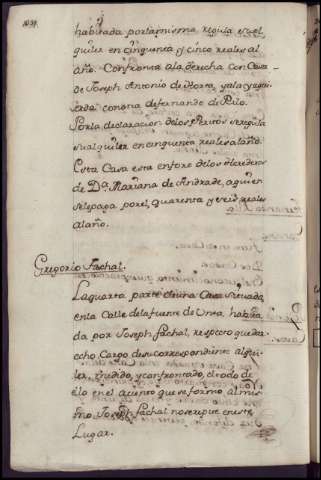 habitada por la misma, regula su al
quiler en cinquenta y cinco reales al
año. Confronta a la derecha con Casa
de Joseph Antonio de Horta, y a la yzqui
erda con otra de fernando de Rilo.
Por la declaracion de los Peritos se regula
su alquiler en cinquenta reales al año.
Esta Casa esta enforo de los Herederos
de D.ª Mariana de Andrade, a quien
se le paga por el, quarenta y seis reales
al año.
Gregorio Fachal.
La quarta parte de una Casa situada
en la Calle de la fuente de Onta, habita
da por Joseph fachal, respecto que de
echo Cargo de su correspondiente alqui
ler, medido, y confrontado, el todo de
ello en el asiento que se formo al mis
mo Joseph fachal no se repite en este
Lugar.